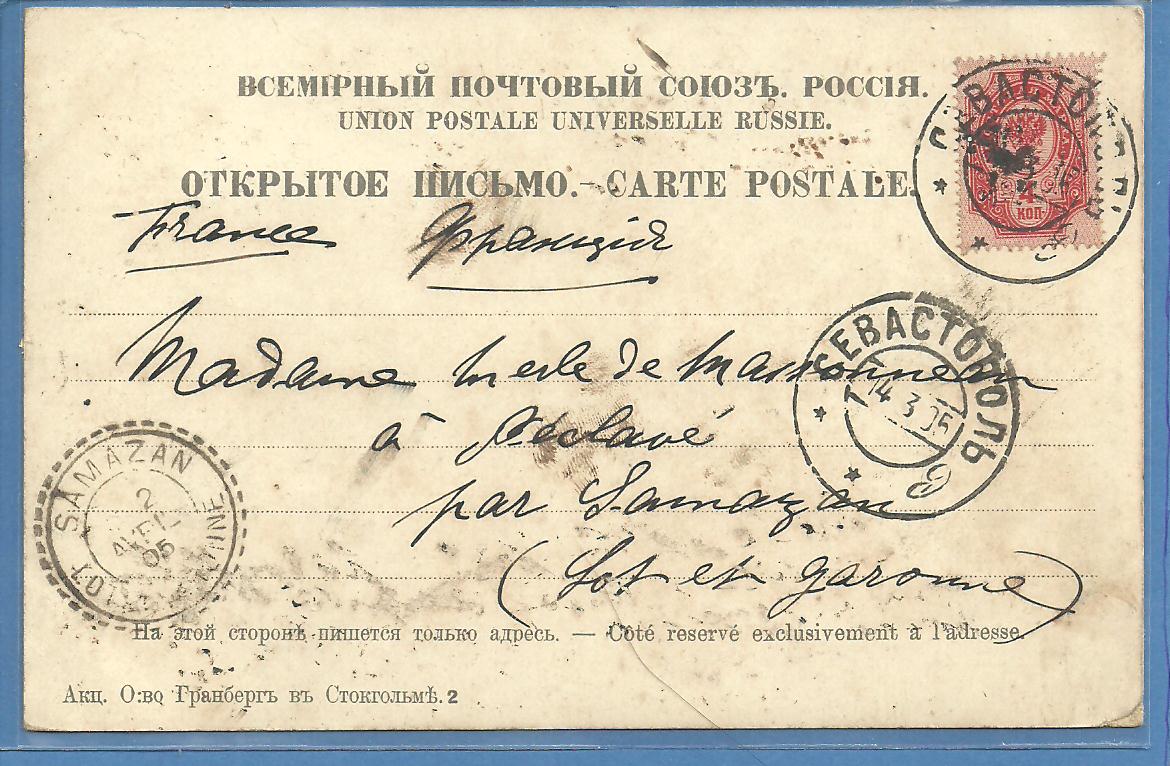 ВСЕМІРНЫЙ ПОЧТОВЫЙ СОЮЗЪ. РОССІЯ.
UNION POSTALE UNIVERSELLE RUSSIE.
ОТКРЫТОЕ ПИСЬМО.—CARTE POSTALE.
СЕВАСТОПОЛЬ
4
КОП
France Франція
СЕВАСТОПОЛЬ
14 3 05
Madame Merle de Massonneau
à
par Samazan
(Lot et garonne)
SAMAZAN
2
05
LOT-ET-GARONNE
На этой сторонѣ пишется только адресь. — Côté reservé exclusivement à l'adresse.
Акц. О:во Гранбергъ въ Стокгольмѣ. 2